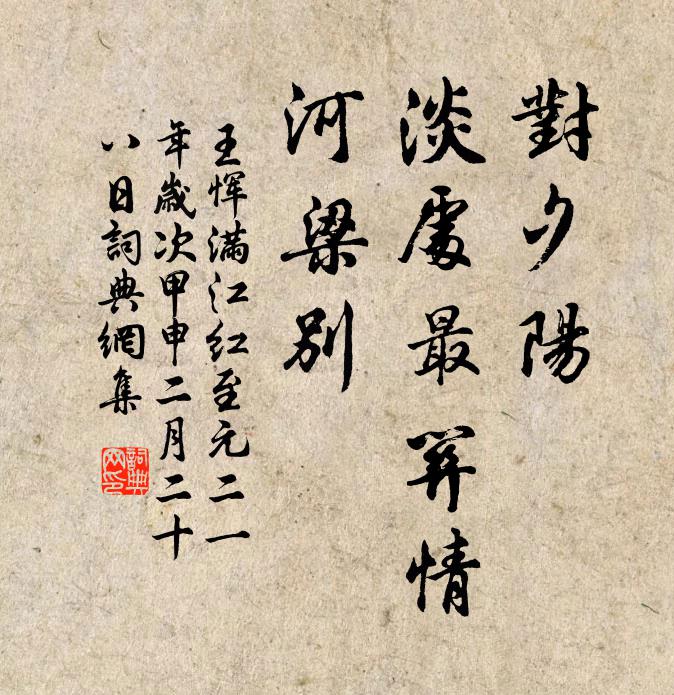 對夕陽
淡處最關情
河梁別
王惲滿江紅至元二一
年歲次甲申二月二十
八日詞典網集
詞典網印